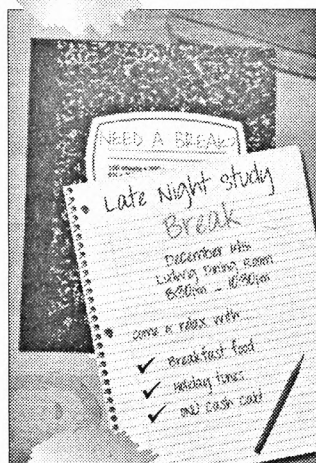 NEED A BREAK?
Late Night Study
Break
December
Dining Room
8:30pm - 10:30pm
come & relax with
Breakfast food
Holiday tunes
cash cab!